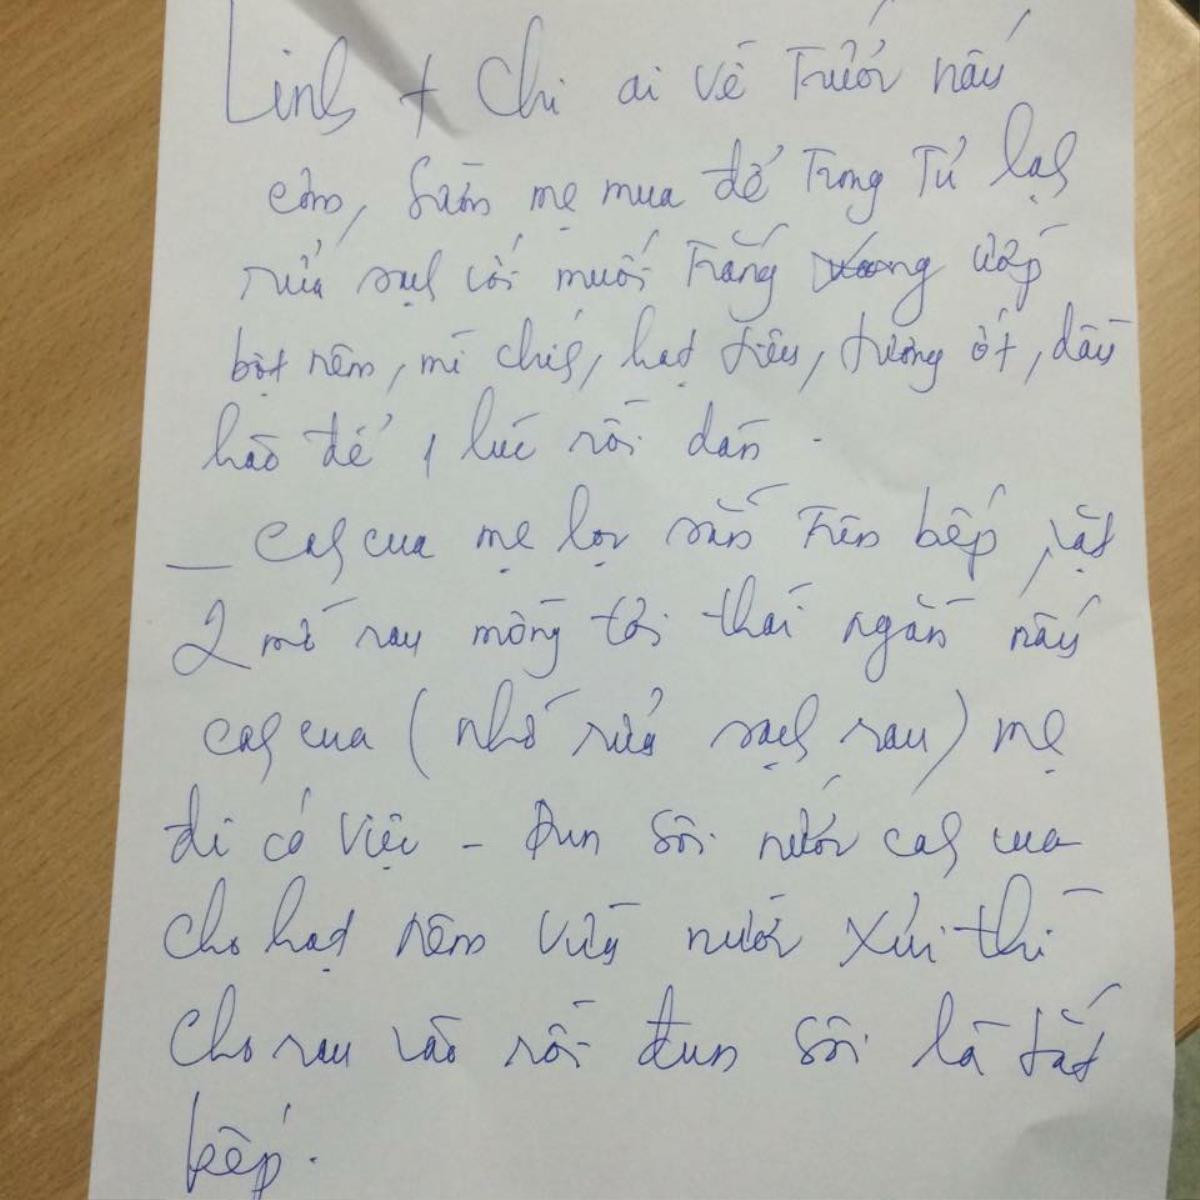 Linh + Chi ai về trước nấu
cơm, sườn mẹ mua để trong tủ lạnh
rửa sạch với muối trắng ướp
bột nêm, mì chính, hạt tiêu, tương ớt, dầu
hào để 1 lúc rồi dán.
_ Canh cua mẹ lọc sẵn trên bếp, nhặt
2 mớ rau mồng tơi thái ngắn nấu
canh cua (nhớ rửa sạch rau) mẹ
đi có việc - Đun sôi nước canh cua
cho hạt nêm vừa nước sủi thì
cho rau vào rồi đun sôi là tắt
bếp.